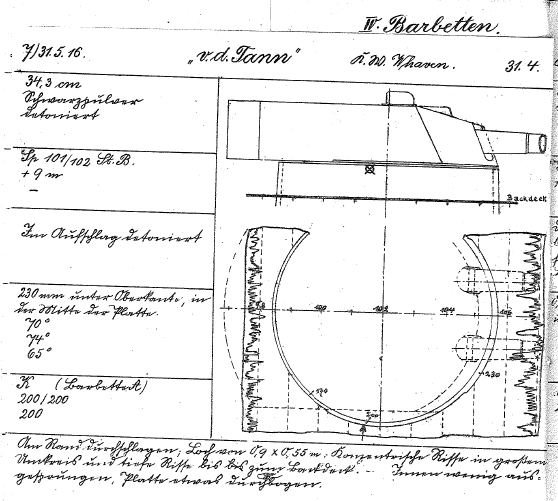 IV. Barbetten.
7)31.5.16. „v.d.Tann" K.W. Whaven. 31.4.
34,3 cm
Schwarzpulver
detoniert
Sp 101/102 St.B.
+ 9 m
–
Im Aufschlag detoniert
230 mm unter Oberkante, in
der Mitte der Platte.
70°
74°
65°
K (Barbette A)
200/200
200
Backdeck
98 100 102 104 106
170
200
230
Am Rand durchschlagen; Loch von 0,9 x 0,55 m; Konzentrische Risse in großem
Umkreis und tiefe Risse bis zum Backdeck. – Innen wenig aus-
gesprungen. Platte etwas durchbogen.